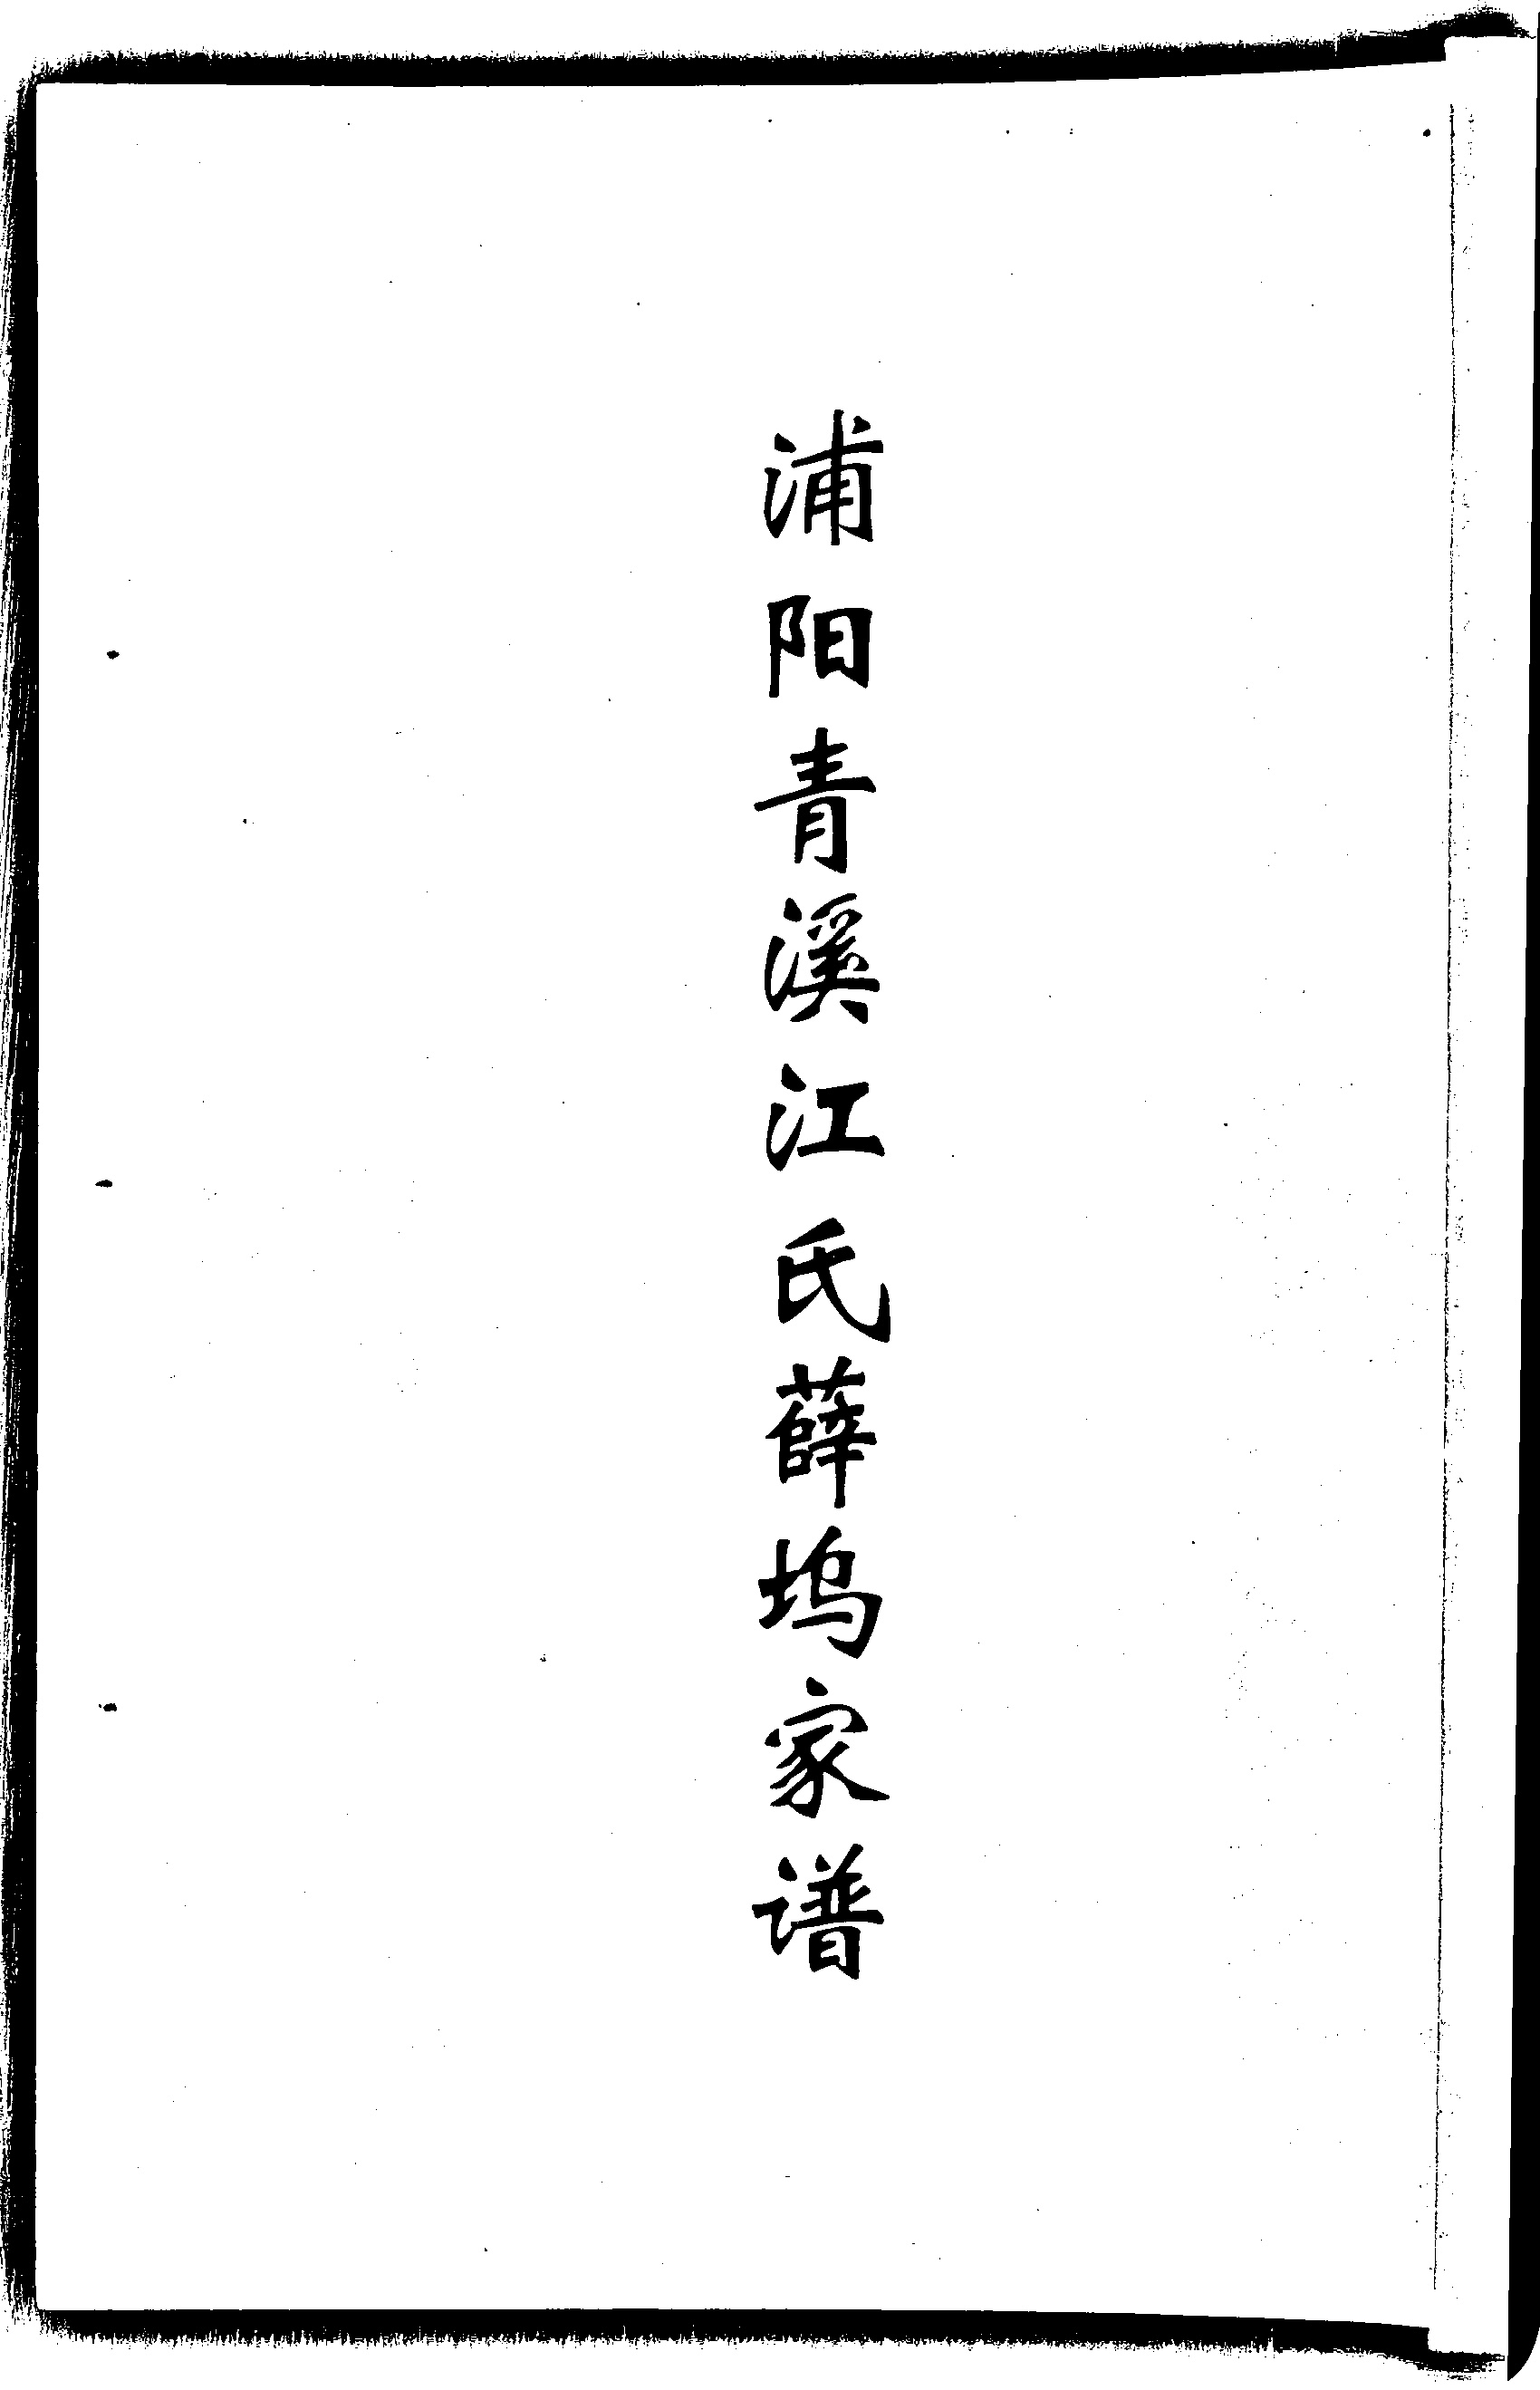 浦阳青溪江氏薛坞家谱